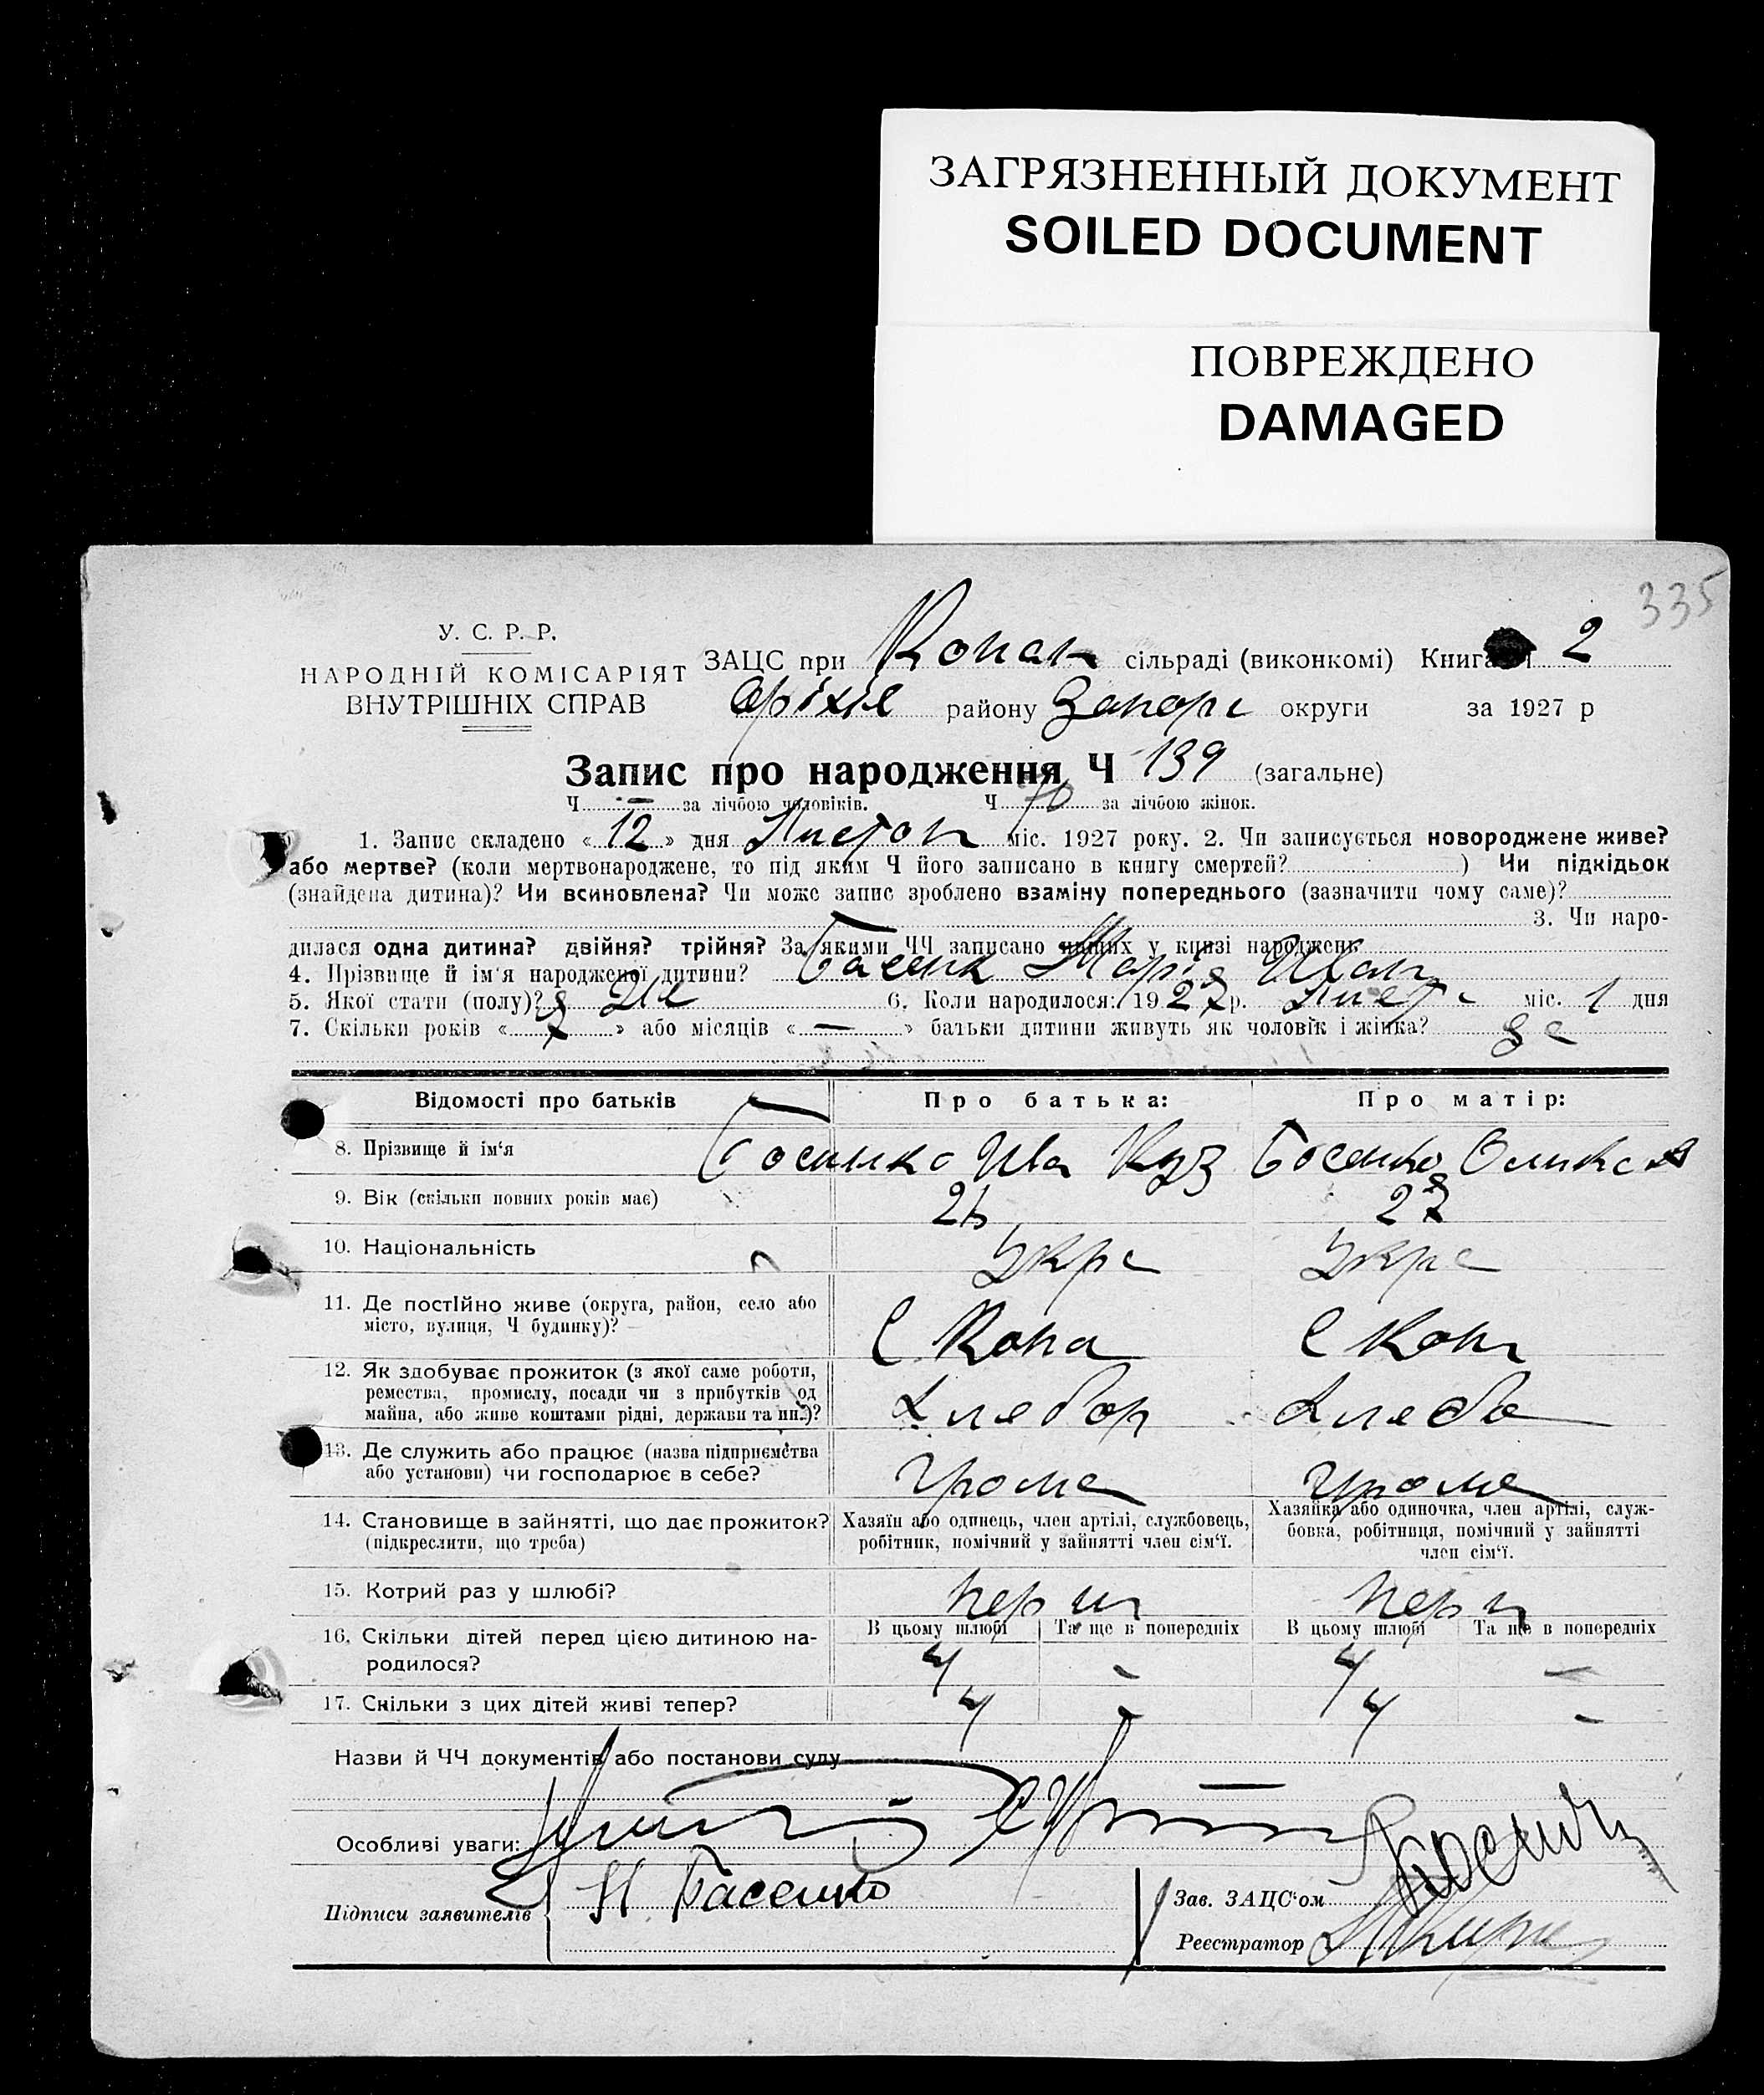 ЗАГРЯЗНЕННЫЙ ДОКУМЕНТ
SOILED DOCUMENT
ПОВРЕЖДЕНО
DAMAGED
335
У. С. Р. Р.
НАРОДНІЙ КОМІСАРІЯТ
ВНУТРІШНІХ СПРАВ
ЗАЦС при Копан сільраді (виконкомі) Книга 2
Оріхів району Запоріз округи за 1927 р
Запис про народження Ч 139 (загальне)
Ч — за лічбою чоловіків. Ч 70 за лічбою жінок.
1. Запис складено « 12 » дня Листоп міс. 1927 року. 2. Чи записується новороджене живе?
або мертве? (коли мертвонароджене, то під яким Ч його записано в книгу смертей? ) Чи підкідьок
(знайдена дитина)? Чи всиновлена? Чи може запис зроблено взаміну попереднього (зазначити чому саме)?
3. Чи наро-
дилася одна дитина? двійня? трійня? За якими ЧЧ записано инших у книзі народжень
4. Прізвище й ім'я народженої дитини? Басенк Марія Иван
5. Якої стати (полу)? Жи 6. Коли народилося: 1927 р. Лист міс. 1 дня
7. Скільки років « » або місяців « — » батьки дитини живуть як чоловік і жінка?
Відомості про батьків
Про батька:
Про матір:
8. Прізвище й ім'я Босенко Ива Куз Босенко
9. Вік (скільки повних років має)
10. Національність Укра Укра
11. Де постійно живе (округа, район, село або
місто, вулиця, Ч будинку)? С Копа С Коп
12. Як здобуває прожиток (з якої саме роботи,
ремества, промислу, посади чи з прибутків од
майна, або живе коштами рідні, держави та ин.)? Хлебор Хлебо
13. Де служить або працює (назва підприємства
або установи) чи господарює в себе?
14. Становище в зайнятті, що дає прожиток?
(підкреслити, що треба)
Хазяїн або одинець, член артілі, службовець,
робітник, помічний у зайнятті член сім'ї.
Хазяйка або одиночка, член артілі, служ-
бовка, робітниця, помічний у зайнятті
член сім'ї.
15. Котрий раз у шлюбі? перш перш
16. Скільки дітей перед цією дитиною на-
родилося?
В цьому шлюбі Та ще в попередніх В цьому шлюбі Та ще в попередніх
4 - 4 —
17. Скільки з цих дітей живі тепер? 4 - 4 -
Назви й ЧЧ документів або постанови суду
Особливі уваги:
Підписи заявителів И. Басенко
Зав. ЗАЦС'ом
Реєстратор